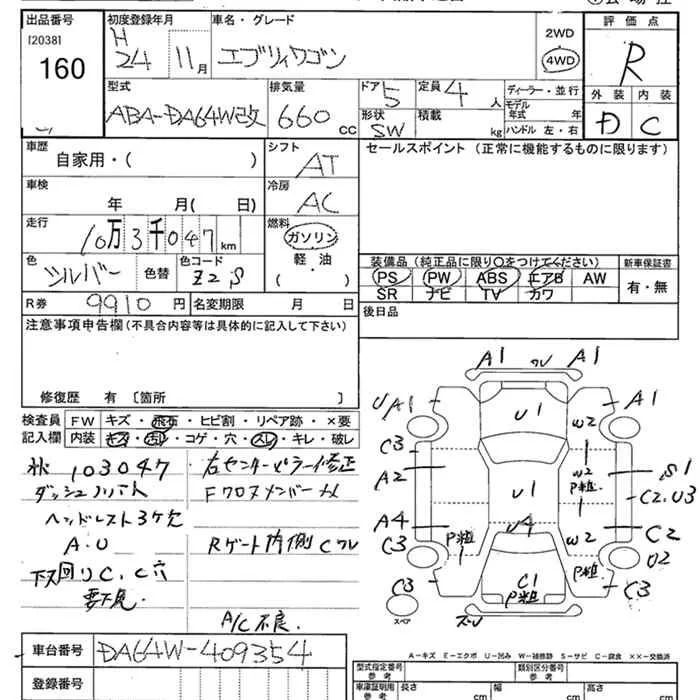 出品番号 初度登録年月 車名・グレード 評価点
[2038]
160
H 24 11月 エブリィワゴン 2WD 4WD R
型式 排気量 ドア 定員 ディーラー・並行 外装 内装
ABA-DA64W改 660 cc 5 4人 モデル年式 年 D C
形状 SW 積載 kg ハンドル 左・右
車歴 自家用・( ) シフト AT セールスポイント (正常に機能するものに限ります)
車検 年 月( 日) 冷房 AC
走行 10万3千047km 燃料 ガソリン 軽油・( )
装備品 (純正品に限り〇をつけてください) 新車保証書
色 シルバー 色替 色コード Z2S PS PW ABS エアB AW 有・無
SR ナビ TV カワ
R券 9910円 名変期限 月 日 後日品
注意事項申告欄 (不具合内容等は具体的に記入して下さい)
修復歴 有 〔箇所 〕
検査員記入欄 FW キズ・飛石・ヒビ割・リペア跡・×要
内装 キズ・汚れ・コゲ・穴・スレ・キレ・破レ
103047 右センターピラー修正
Fクロスメンバー
ヘッドレスト3ケ欠
A.U Rゲート内側Cワレ
下回りC.C穴
要下見
A/C不良
A1 ワレ A1
UA1 U1 W2 A1
C3 A2 W2 P粒 S1
U1 C2.U3
A4 U4 C2
C3 P粒 W2 U2
C3 C1 P粒 P粒 C3
スペア
A-キズ E-エクボ U-凹み W-補修跡 S-サビ C-腐食 ××-交換済
車台番号 DA64W-409354 型式指定番号 参考 類別区分番号 参考
登録番号 車庫証明用 参考 長さ cm 幅 cm 高さ cm